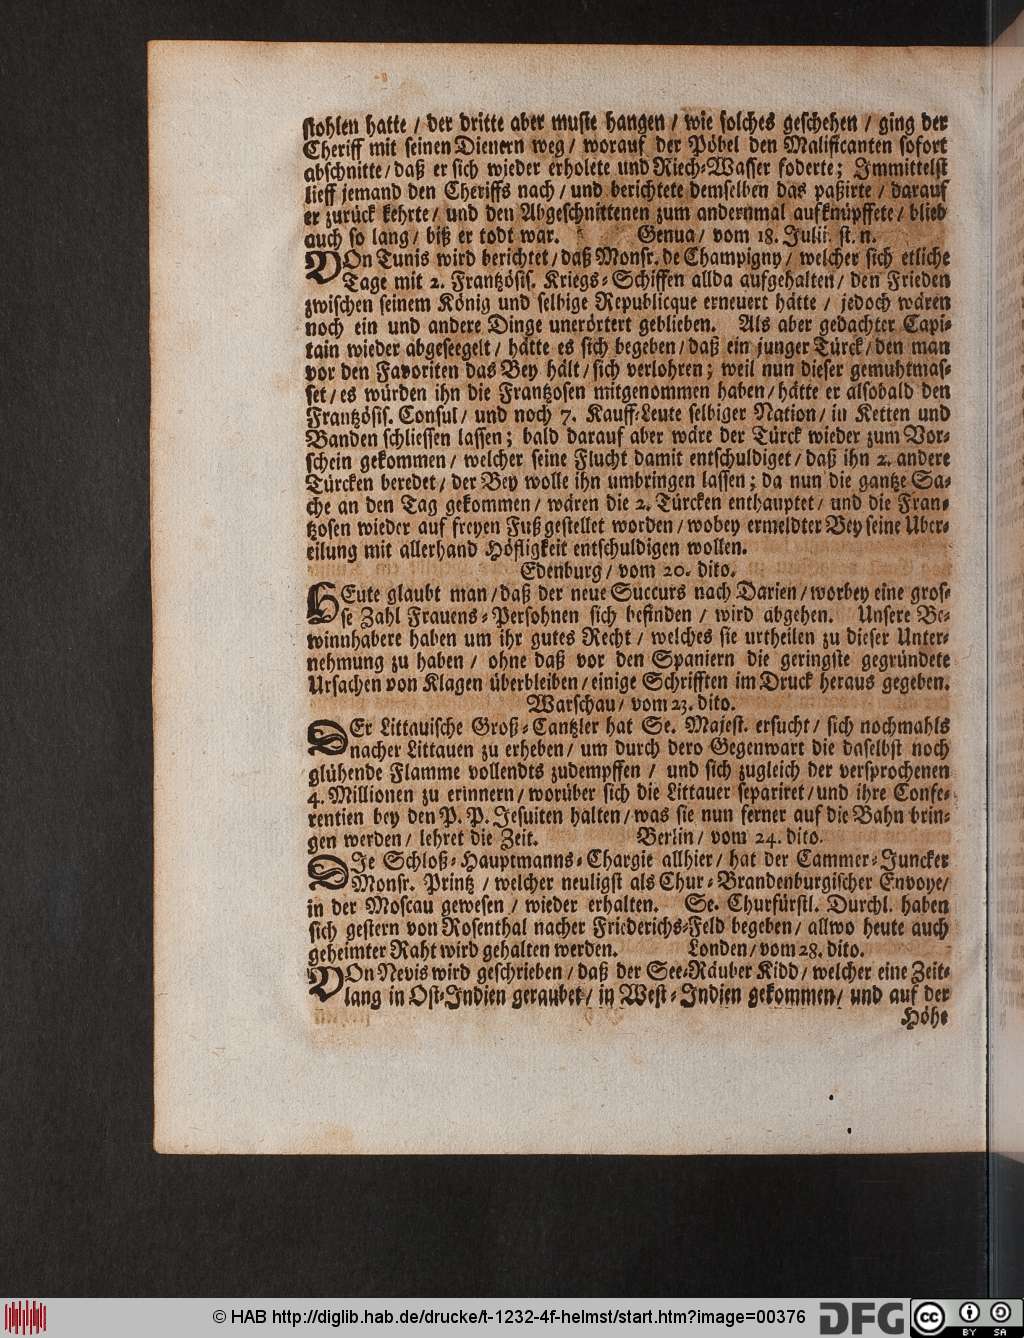 stohlen hatte / der dritte aber muste hangen / wie solches geschehen / ging der
Cheriff mit seinen Dienern weg / worauf der Pöbel den Malificanten sofort
abschnitte / daß er sich wieder erholete und Riech-Wasser foderte; Immittelst
lieff jemand den Cheriffs nach / und berichtete demselben das paßirte / darauf
er zurück kehrte / und den Abgeschnittenen zum andernmal aufknüpffete / blieb
auch so lang / biß er todt war. Genua / vom 18. Julii. st. n.
VOn Tunis wird berichtet / daß Monsr. de Champigny / welcher sich etliche
Tage mit 2. Frantzösis. Kriegs-Schiffen allda aufgehalten / den Frieden
zwischen seinem König und selbige Republicque erneuert hätte / jedoch wären
noch ein und andere Dinge unerörtert geblieben. Als aber gedachter Capi-
tain wieder abgeseegelt / hätte es sich begeben / daß ein junger Türck / den man
vor den Favoriten das Bey hält / sich verlohren; weil nun dieser gemuhtmas-
set / es würden ihn die Frantzosen mitgenommen haben / hätte er alsobald den
Frantzösis. Consul / und noch 7. Kauff-Leute selbiger Nation / in Ketten und
Banden schliessen lassen; bald darauf aber wäre der Türck wieder zum Vor-
schein gekommen / welcher seine Flucht damit entschuldiget / daß ihn 2. andere
Türcken beredet / der Bey wolle ihn umbringen lassen; da nun die gantze Sa-
che an den Tag gekommen / wären die 2. Türcken enthauptet / und die Fran-
tzosen wieder auf freyen Fuß gestellet worden / wobey ermeldter Bey seine Uber-
eilung mit allerhand Höfligkeit entschuldigen wollen.
Edenburg / vom 20. dito.
HEute glaubt man / daß der neue Succurs nach Darien / worbey eine gros-
se Zahl Frauens-Persohnen sich befinden / wird abgehen. Unsere Be-
winnhabere haben um ihr gutes Recht / welches sie urtheilen zu dieser Unter-
nehmung zu haben / ohne daß vor den Spaniern die geringste gegründete
Ursachen von Klagen überbleiben / einige Schrifften im Druck heraus gegeben.
Warschau / vom 23. dito.
DEr Littauische Groß-Cantzler hat Se. Majest. ersucht / sich nochmahls
nacher Littauen zu erheben / um durch dero Gegenwart die daselbst noch
glühende Flamme vollendts zudempffen / und sich zugleich der versprochenen
4. Millionen zu erinnern / worüber sich die Littauer separiret / und ihre Confe-
rentien bey den P. P. Jesuiten halten / was sie nun ferner auf die Bahn brin-
gen werden / lehret die Zeit. Berlin / vom 24. dito.
DIe Schloß-Hauptmanns-Chargie allhier / hat der Cammer-Juncker
Monsr. Printz / welcher neuligst als Chur-Brandenburgischer Envoye /
in der Moscau gewesen / wieder erhalten. Se. Churfürstl. Durchl. haben
sich gestern von Rosenthal nacher Friederichs-Feld begeben / allwo heute auch
geheimter Raht wird gehalten werden. Londen / vom 28. dito.
VOn Nevis wird geschrieben / daß der See-Räuber Kidd / welcher eine Zeit-
lang in Ost-Indien geraubet / in West-Indien gekommen / und auf der
Höhe
© HAB http://diglib.hab.de/drucke/t-1232-4f-helmst/start.htm?image=00376 DFG cc BY SA